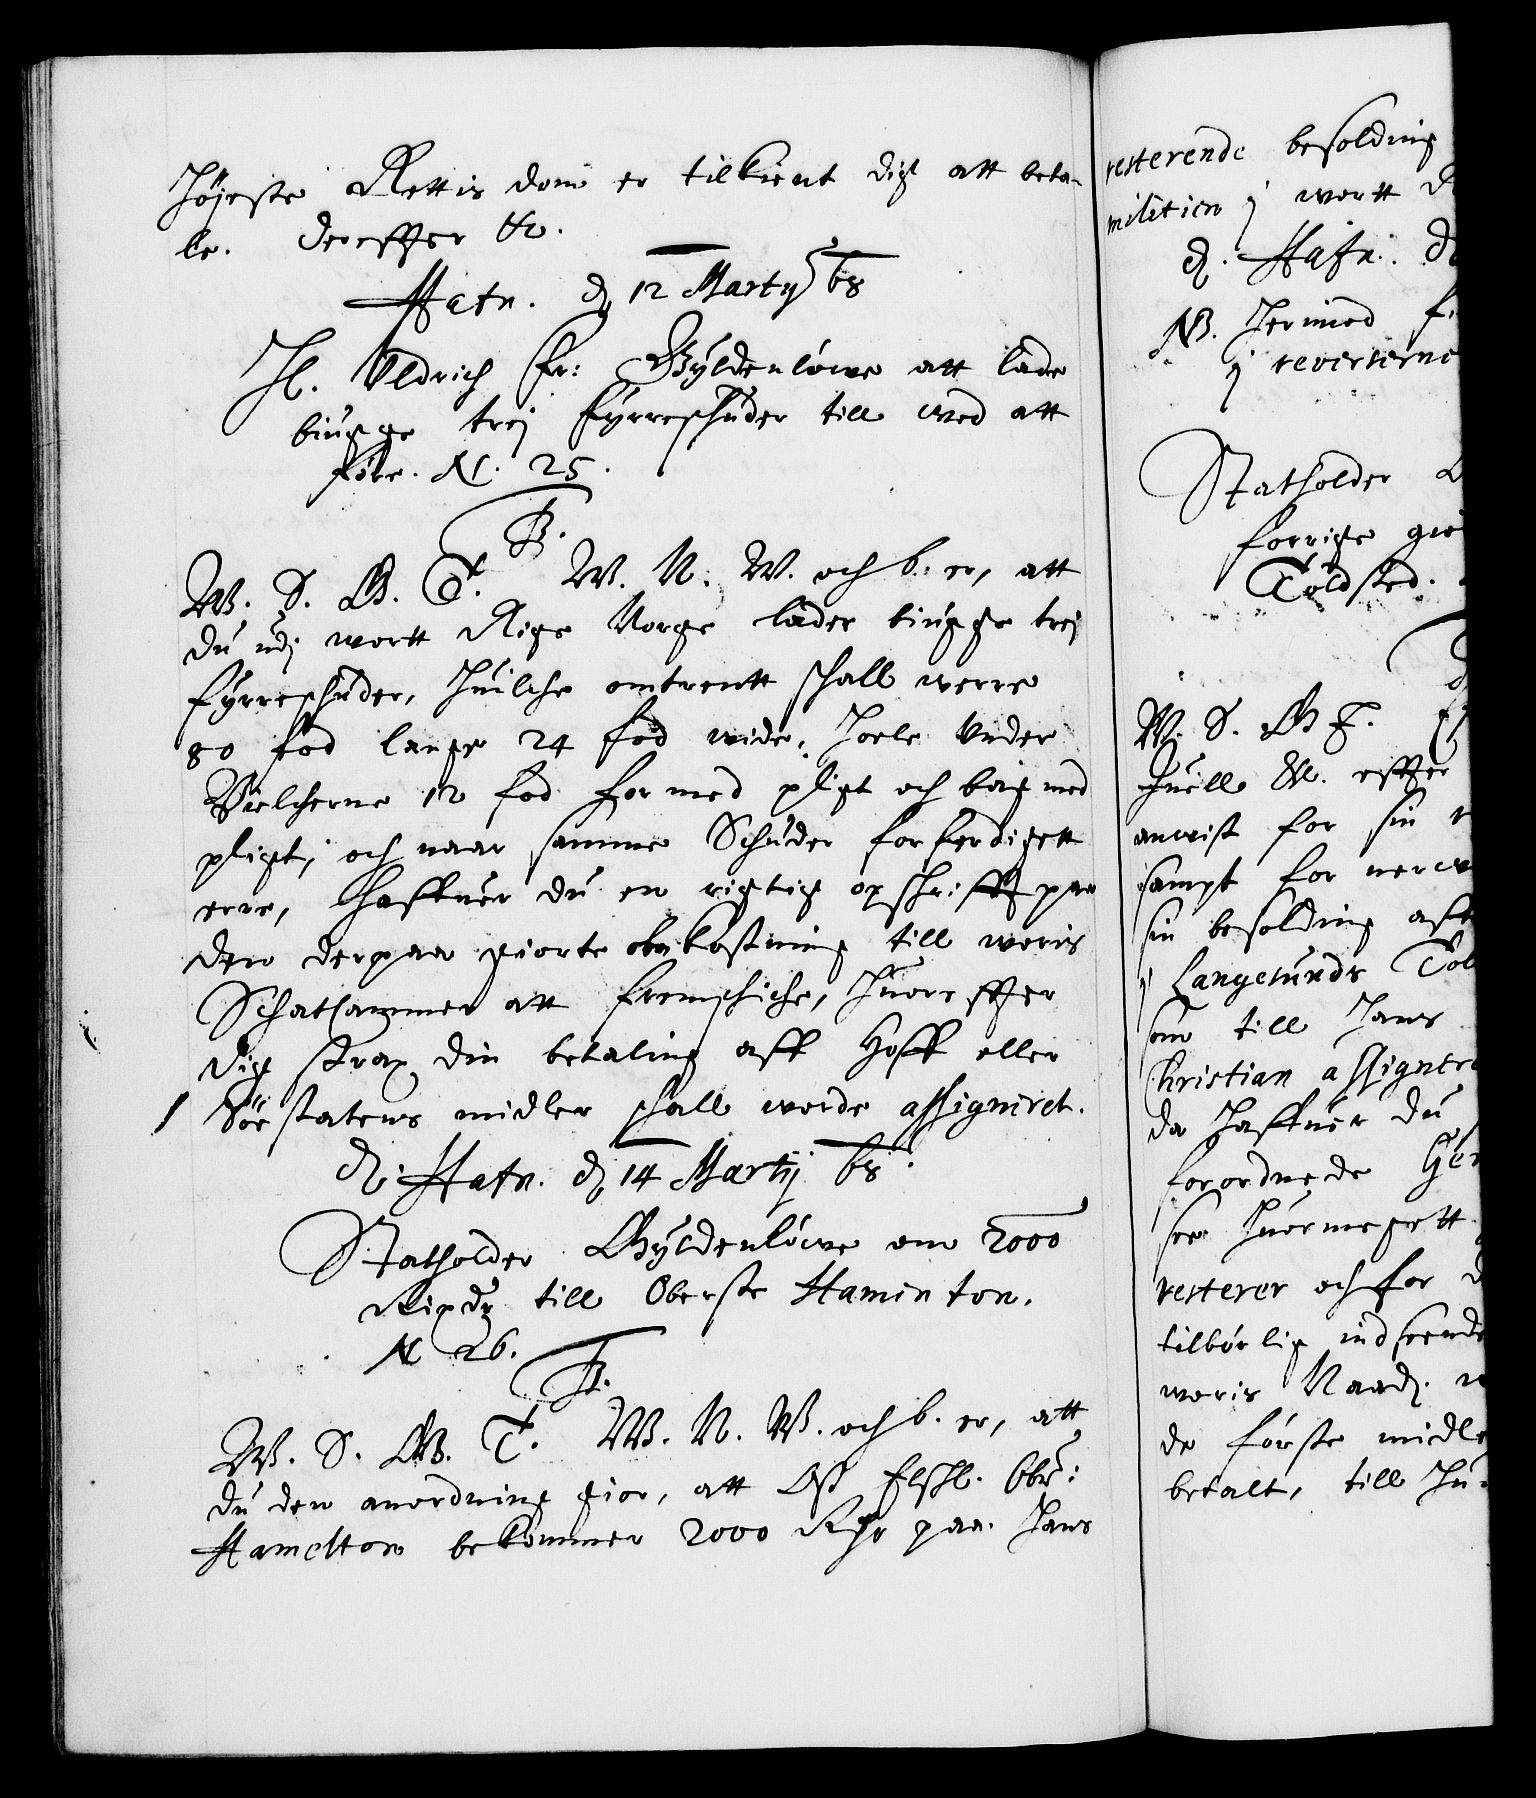 Højeste Rettis dom er tilkient dig att beta-
le. derefter etc.
Hafn. d 12 Martij 68
H. Uldrich Fr: Gyldenløwe att lade
biugge trej fyrreschuder till wed att
føre. N. 25.
W. S. G. T. W. N. W. och b: er, att
du udj wortt Rige Norge lader biugge trej
fyrreschuder, huilche omtrentt schall werre
80 fod lange 24 fod wide, hoele under
Bielcherne 12 fod for med pligt och bag med
pligt, och naar samme Schuder forferdigett
erre, haffuer du en rigtig opschrifft paa
den derpaa giorte obekostning till woris
Schatkammer att fremschiche, huoreffter
dig strax din betaling aff Hoff eller
Søe statens midler schall worde assigniret.
d. Hafn. d 14 Martij 68.
Statholder Gyldenløwe om 2000
Rixdr till Oberste Haminton.
N 26.
W. S. G. T. W. N. W. och b. er, att
du den anordning giør, att Oss Elschl. Obr:
Hamelton bekommer 2000 Rdr paa hans
resterende besolding
militien j wortt
d. Hafn.
NB. hermed
j reverserne
Statholder
forrige
Toldsted.
W. S. G T.
Juell etc. effter
anwist for sin
sampt for
sin besolding
j Langesunds
som till hans
Christian
da haffuer du
forordnede
see huormegett
resterer och for
tilbørlig indseende
woris Naad.
de første
betalt, till